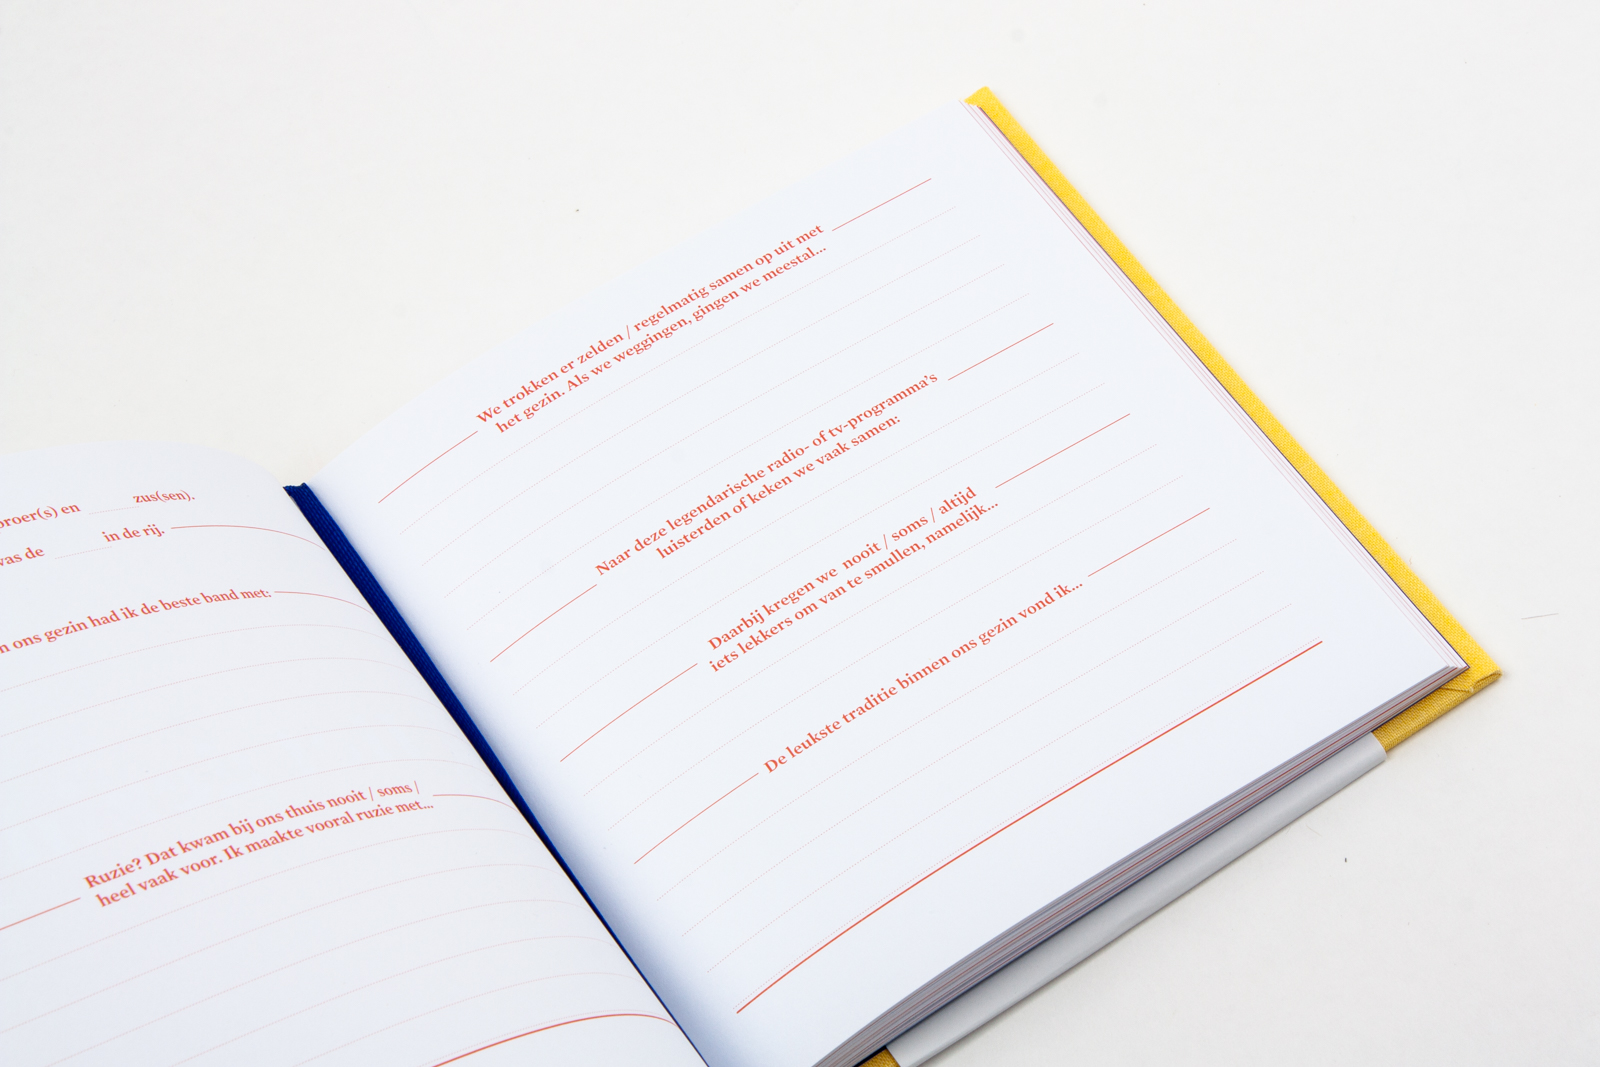 zus(sen).
broer(s) en
in de rij.
was de
ons gezin had ik de beste band met:
Ruzie? Dat kwam bij ons thuis nooit / soms /
heel vaak voor. Ik maakte vooral ruzie met...
We trokken er zelden / regelmatig samen op uit met
het gezin. Als we weggingen, gingen we meestal...
Naar deze legendarische radio- of tv-programma's
luisterden of keken we vaak samen:
Daarbij kregen we nooit / soms / altijd
iets lekkers om van te smullen, namelijk...
De leukste traditie binnen ons gezin vond ik...